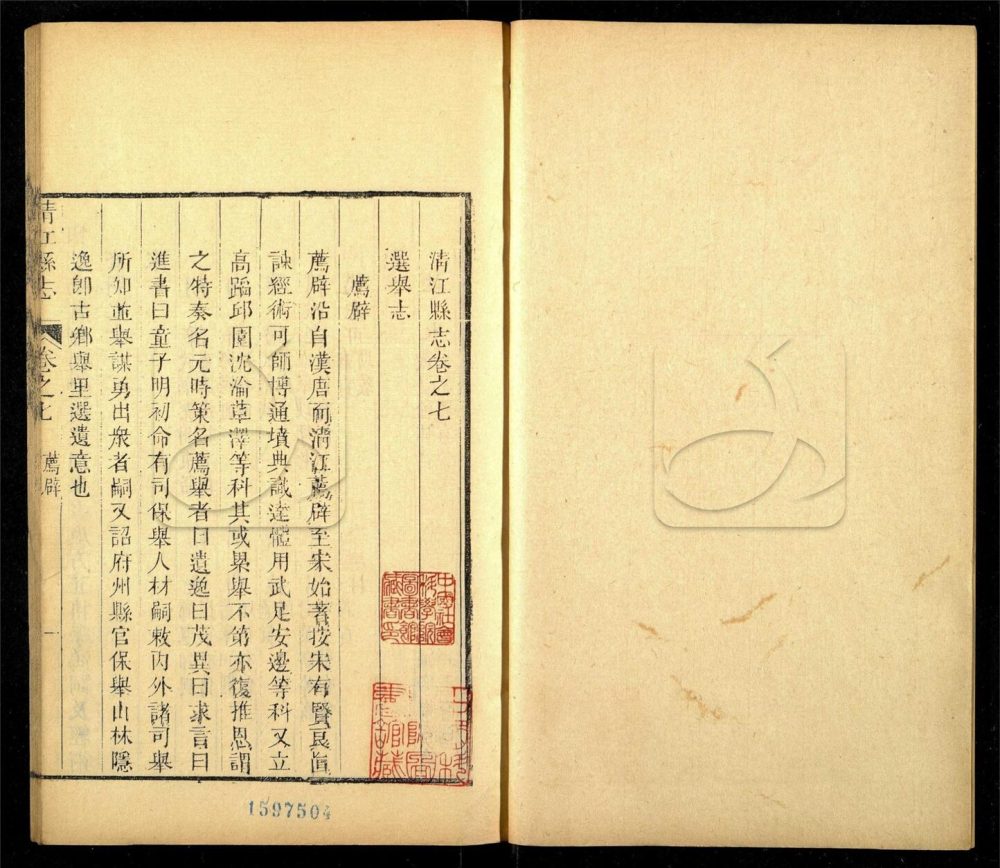 清江縣志卷之七
選舉志
薦辟
薦辟沿自漢唐而清江薦辟至宋始著按宋有賢良直
諫經術可師博通墳典識達體用武足安邊等科又立
高蹈邱園沈淪草澤等科其或累舉不第亦復推恩謂
之特奏名元時策名薦舉者曰遺逸曰茂異曰求言曰
進書曰童子明初命有司保舉人材嗣敕内外諸司舉
所知並舉謀勇出衆者嗣又詔府州縣官保舉山林隱
逸卽古鄉舉里選遺意也
清江縣志
卷之七
薦辟
一
1597504